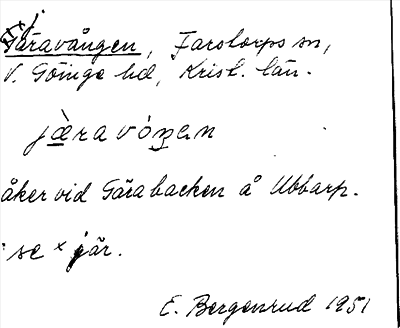 Găravången, Farstorps sn,
V. Göinge hd, Krist. län.
jæ̀ravóŋan
åker vid Gårabacken å Ubbarp.
se × jăr.
E. Bergenrud 1951